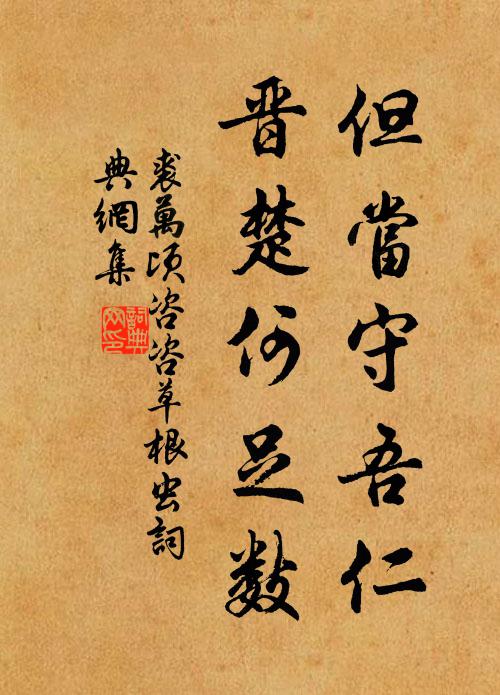 但當守吾仁
晋楚何足数
裘萬頃咨咨草根虫詞
典網集
詞典
网印